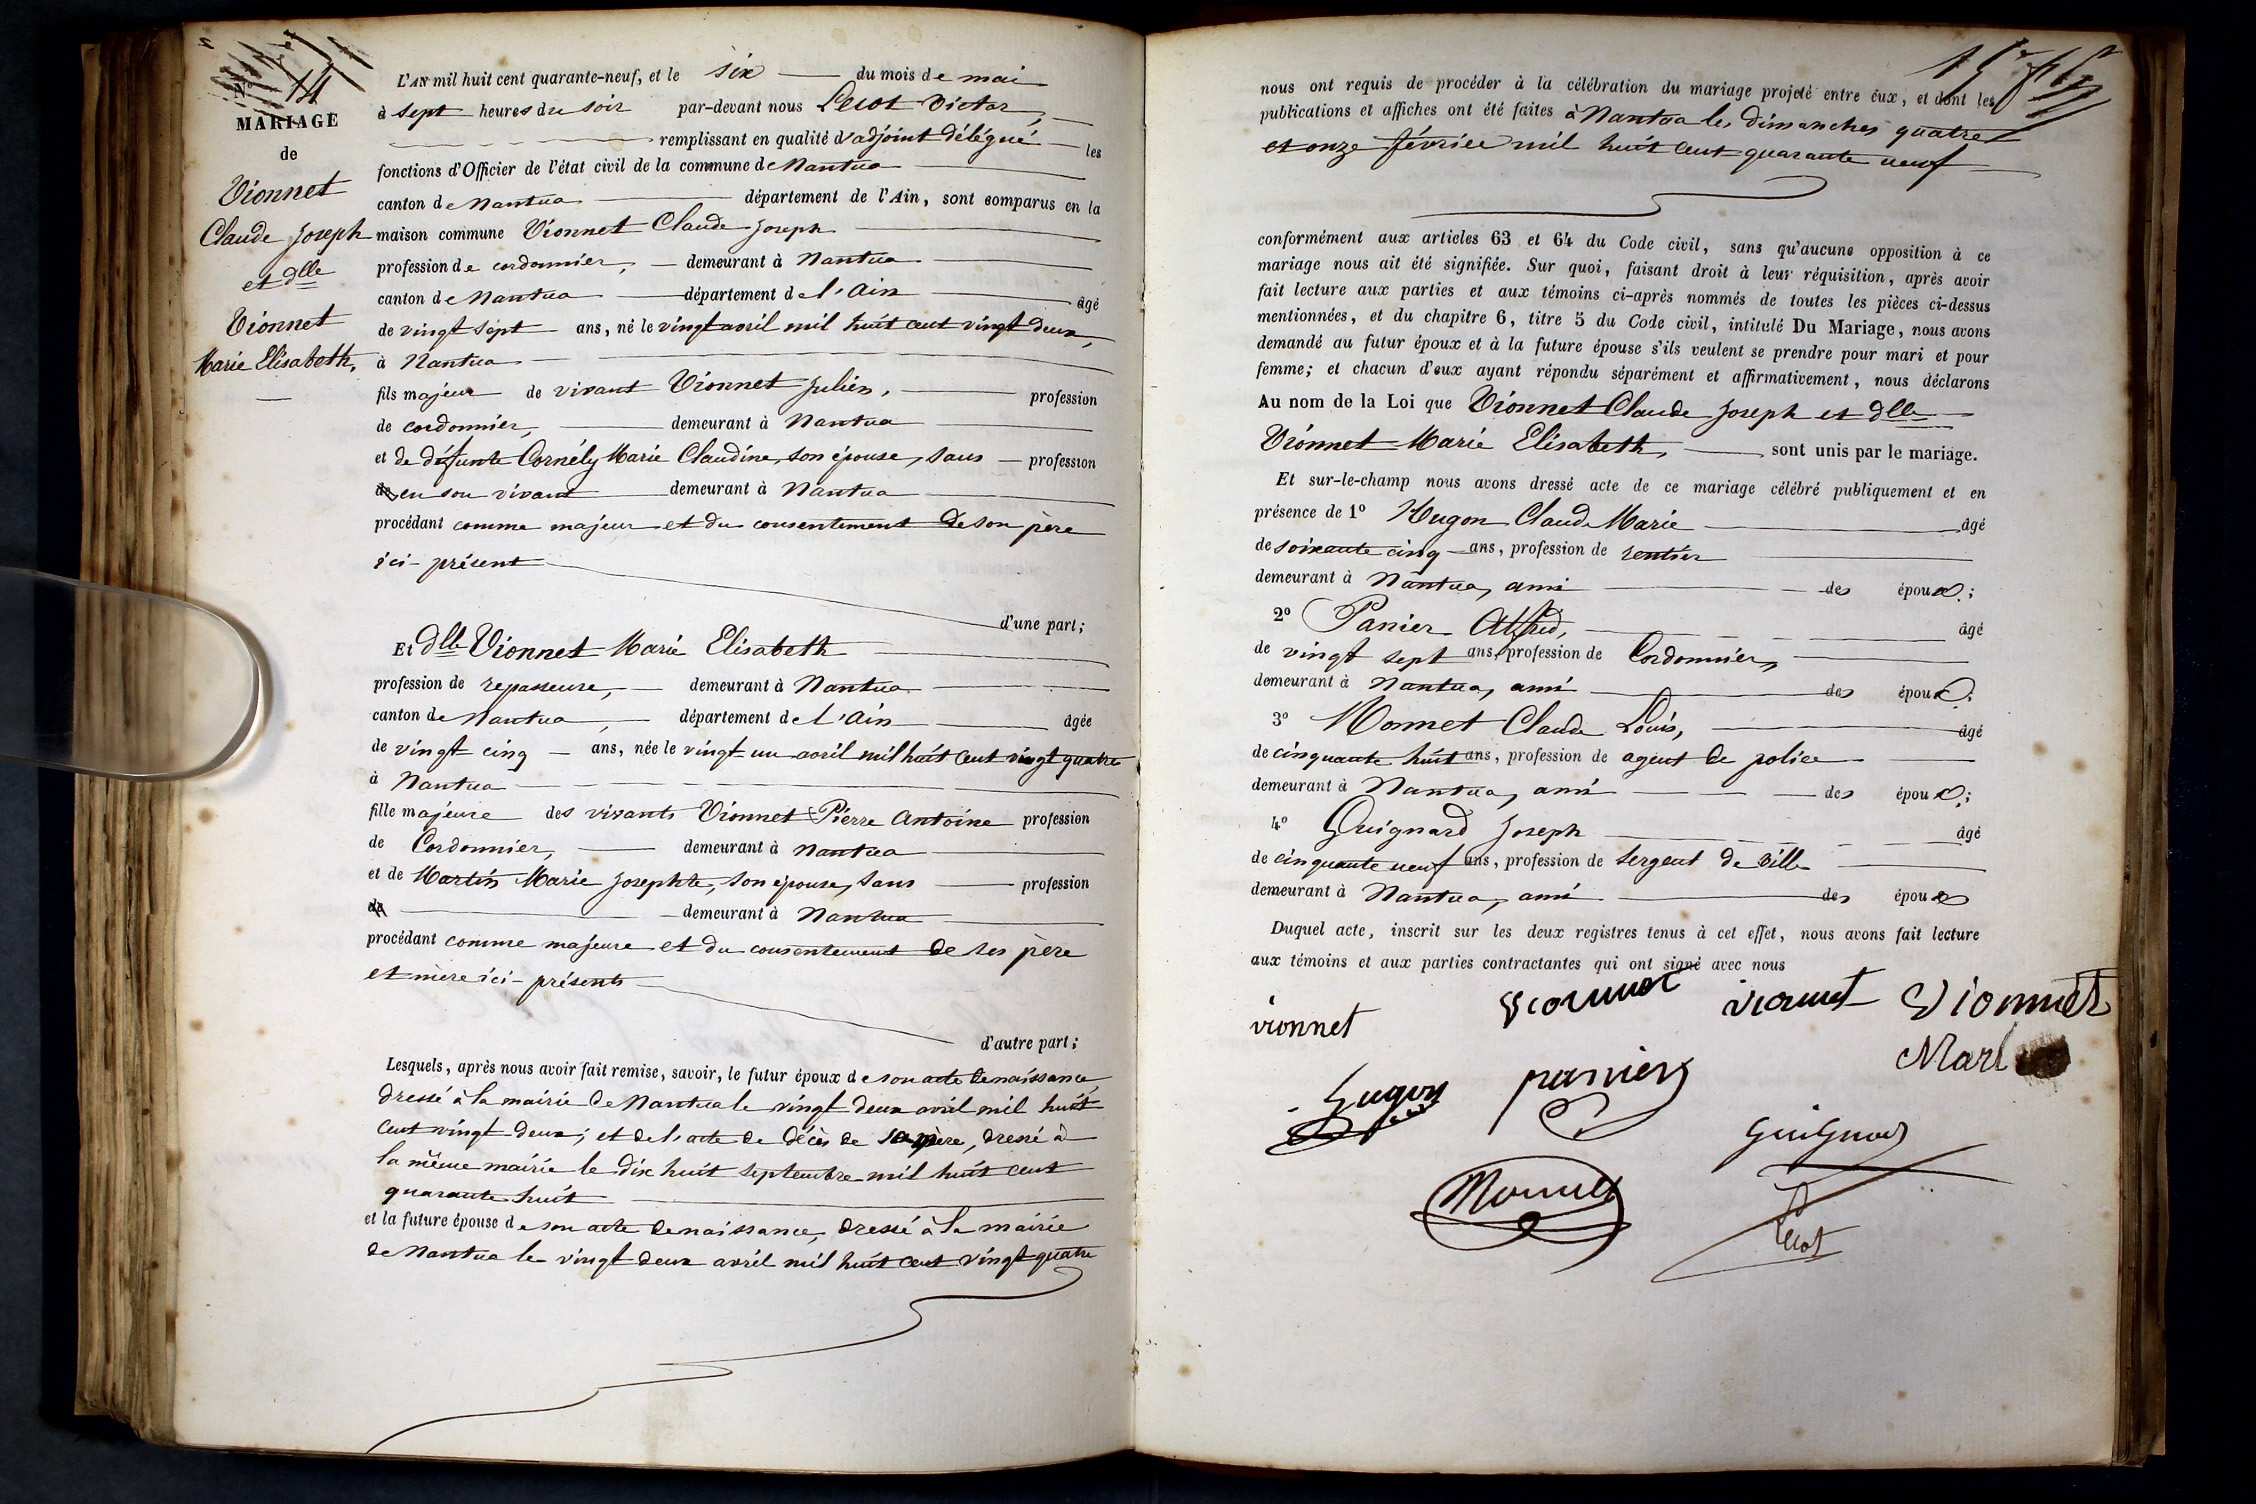 14
MARIAGE
de
Vionnet
Claude Joseph
et dlle
Vionnet
Marie Elisabeth,
L'AN mil huit cent quarante-neuf, et le six du mois de mai
à sept heures du soir par-devant nous Lecot Victor,
remplissant en qualité d'adjoint délégué les
fonctions d'Officier de l'état civil de la commune de Nantua
canton de Nantua département de l'Ain, sont comparus en la
maison commune Vionnet Claude Joseph
profession de cordonnier, demeurant à Nantua
canton de Nantua département de l'Ain âgé
de vingt sept ans, né le vingt avril mil huit cent vingt deux,
à Nantua
fils majeur de vivant Vionnet Julien, profession
de cordonnier, demeurant à Nantua
et de défunte Cornély Marie Claudine, son épouse, sans profession
de en son vivant demeurant à Nantua
procédant comme majeur et du consentement de son père
ici-présent
d'une part;
Et dlle Vionnet Marie Elisabeth
profession de repasseuse, demeurant à Nantua
canton de Nantua, département de l'Ain âgée
de vingt cinq ans, née le vingt un avril mil huit cent vingt quatre
à Nantua
fille majeure des vivants Vionnet Pierre Antoine profession
de Cordonnier, demeurant à Nantua
et de Martin Marie Josephte, son épouse, sans profession
de demeurant à Nantua
procédant comme majeure et du consentement de ses père
et mère ici-présents
d'autre part;
Lesquels, après nous avoir fait remise, savoir, le futur époux de son acte de naissance,
dressé à la mairie de Nantua le vingt deux avril mil huit
cent vingt deux; et de l'acte de décès de sa mère, dressé à
la même mairie le dix huit septembre mil huit cent
quarante huit
et la future épouse de son acte de naissance, dressé à la mairie
de Nantua le vingt deux avril mil huit cent vingt quatre
nous ont requis de procéder à la célébration du mariage projeté entre eux, et dont les
publications et affiches ont été faites à Nantua les dimanches quatre
et onze février mil huit cent quarante neuf
conformément aux articles 63 et 64 du Code civil, sans qu'aucune opposition à ce
mariage nous ait été signifiée. Sur quoi, faisant droit à leur réquisition, après avoir
fait lecture aux parties et aux témoins ci-après nommés de toutes les pièces ci-dessus
mentionnées, et du chapitre 6, titre 5 du Code civil, intitulé Du Mariage, nous avons
demandé au futur époux et à la future épouse s'ils veulent se prendre pour mari et pour
femme; et chacun d'eux ayant répondu séparément et affirmativement, nous déclarons
Au nom de la Loi que Vionnet Claude Joseph et dlle
Vionnet Marie Elisabeth, sont unis par le mariage.
Et sur-le-champ nous avons dressé acte de ce mariage célébré publiquement et en
présence de 1º Hugon Claude Marie âgé
de soixante cinq ans, profession de rentier
demeurant à Nantua, ami des époux;
2º Panier Alfred, âgé
de vingt sept ans, profession de Cordonnier,
demeurant à Nantua, ami des époux;
3º Monnet Claude Louis, âgé
de cinquante huit ans, profession de agent de police
demeurant à Nantua, ami des époux;
4º Guignard Joseph âgé
de cinquante neuf ans, profession de sergent de ville
demeurant à Nantua, ami des époux
Duquel acte, inscrit sur les deux registres tenus à cet effet, nous avons fait lecture
aux témoins et aux parties contractantes qui ont signé avec nous
vionnet vionnet vionnet Vionnet
Mart
hugon panier
Guignard
Monnet
Lecot